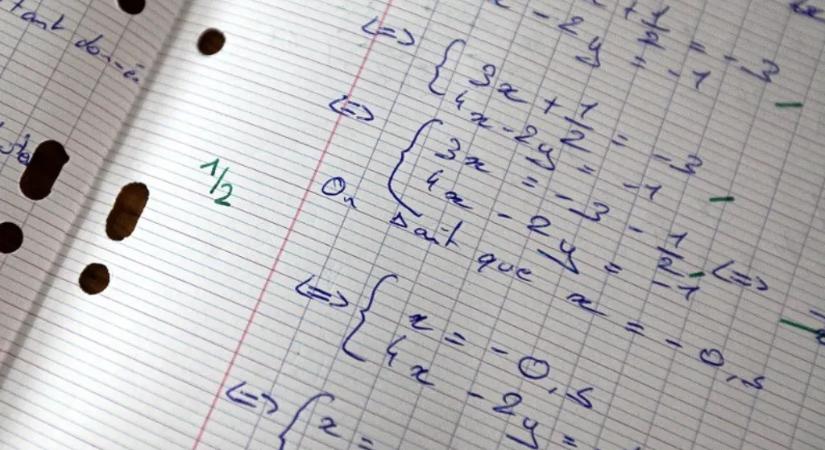 tant donné
1/2
+ 1/2 = -3
x - 2y = -1
<=> { 3x + 1/2 = -3
4x - 2y = -1
<=> { 3x = -3 - 1/2 <=>
4x - 2y = -1
On sait que x = -0,5
<=> { x = -0,5
4x - 2y =
<=> { x =